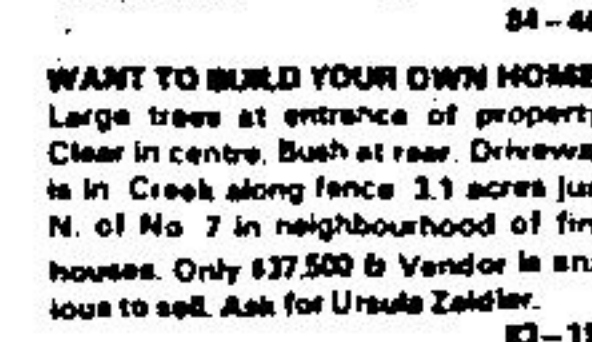 84-4
WANT TO BUILD YOUR OWN HOME
Large trees at entrance of property
Clear in centre. Bush at rear. Drivewa
is in Creek along fence 3.1 acres jus
N. of No 7 in neighbourhood of fin
houses. Only $37,500 & Vendor is anx
ious to sell. Ask for Ursula Zeidler.